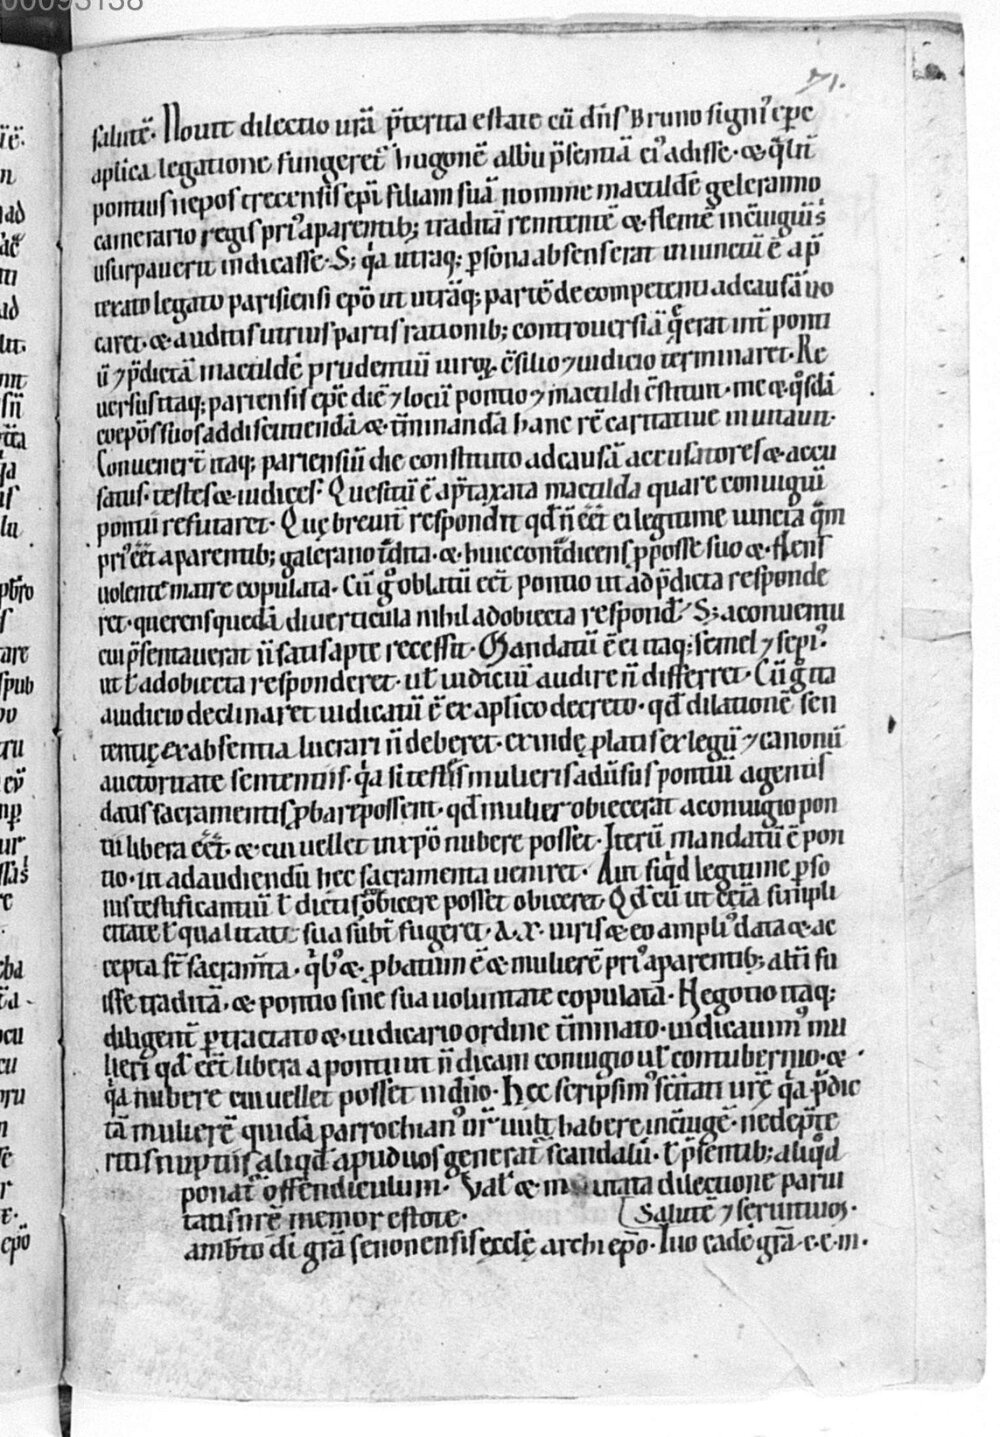 00093138
71.
salutē. Nouit dilectio ur̄a p̄terita estate cū dn̄s Bruno signi' ep̄c
aplica legatione fungeret̄ hugonē albū p̄sentiā ei' adisse. & q̄lit̄
pontius nepos trecensis ep̄i filiam suā nomine matildē galeranno
camerario regis pri' a parentib; traditā renitentē & flentē in c̄iugiū s'
usurpauerit indicasse. S; q̄a utraq; p̄sona absens erat iniunctū ē a p̄
texato legato parisiensi ep̄o ut utrāq; partē de competenti ad causā uo
caret. & auditis utrius partis rationib; controuersiā q̄ erat int̄ ponti
ū ⁊ p̄dictā matildē prudentiū uiroꝝ c̄silio ⁊ iudicio terminaret. Re
uersus itaq; pariensis ep̄c diē ⁊ locū pontio ⁊ matildi c̄stituit. me & q̄sdā
coep̄os suos ad discutiendā & t̄minandā hanc rē caritatiue inuitauit.
Conuener̄t itaq; pariensiū die constituto ad causā accusatores & accu
satus. testes & iudices. Quesitū ē a p̄taxata matilda quare coniugiū
pontii refutaret. Quę breuit̄ respondit qd̄ n̄ eēt ei legitime iuncta q̄m
pri' eēt a parentib; galerano t̄dita. & huic cont̄dicens p̄ posse suo & flens
uolente matre copulata. Cū ḡ oblatū eēt pontio ut ad p̄dicta responde
ret. querens quedā diuerticula nihil ad obiecta respond̄. S; a conuentu
cui p̄sentauerat n̄ satis apte recessit. Mandatū ē ei itaq; semel ⁊ sepi'
ut l̄ ad obiecta responderet. ul̄ iudiciū audire n̄ differret. Cū ḡ ita
a iudicio declinaret iudicatū ē ex aplico decreto. qd̄ dilationē sen
tentię ex absentia lucrari n̄ deberet. exindę platis ex legū ⁊ canonū
auctoritate sententiis. q̄a si testis mulieris adūsus pontiū agentis
datis sacramentis p̄bari possent. qd̄ mulier obiecerat a coniugio pon
tii libera eēt. & cui uellet in xpo nubere posset. Iterū mandatū ē pon
tio. ut ad audiendū hec sacramenta ueniret. Aut siq̄d legitime p̄so
nis testificantiū l̄ dictis obicere posset obiceret. Qd̄ cū ut ec̄iā simpli
citate l̄ qualitate sua subt̄ fugeret. a .x. uiris & eo ampli' data & ac
cepta st̄ sacram̄ta. q̄b' & p̄batum ē & mulierē pri' a parentib; alt̄i fu
isse traditā. & pontio sine sua uoluntate copulatā. Negotio itaq;
diligent̄ p̄tractato & iudiciario ordine t̄minato. iudicauim' mu
lieri qd̄ eēt libera a pontii ut n̄ dicam coniugio ul̄ contubernio. &
q̄a nubere cui uellet posset in dn̄o. Hec scripsim' sc̄itati ur̄ę q̄a p̄dic
tā mulierē quidā parrochian' ur̄ uult habere in c̄iugē. ne de p̄te
ritis nuptiis aliqd̄ apud uos generat̄ scandalū. l̄ p̄sentib; aliq̄d
ponat̄ offendiculum. Val& & inuitata dilectione parui
tatis nr̄ę memor estote. Salutē ⁊ seruitiuoꝝ.
ambt̄o di gr̄a senonensis ęcclę archiep̄o. Iuo eadē gr̄a. c. e. m.